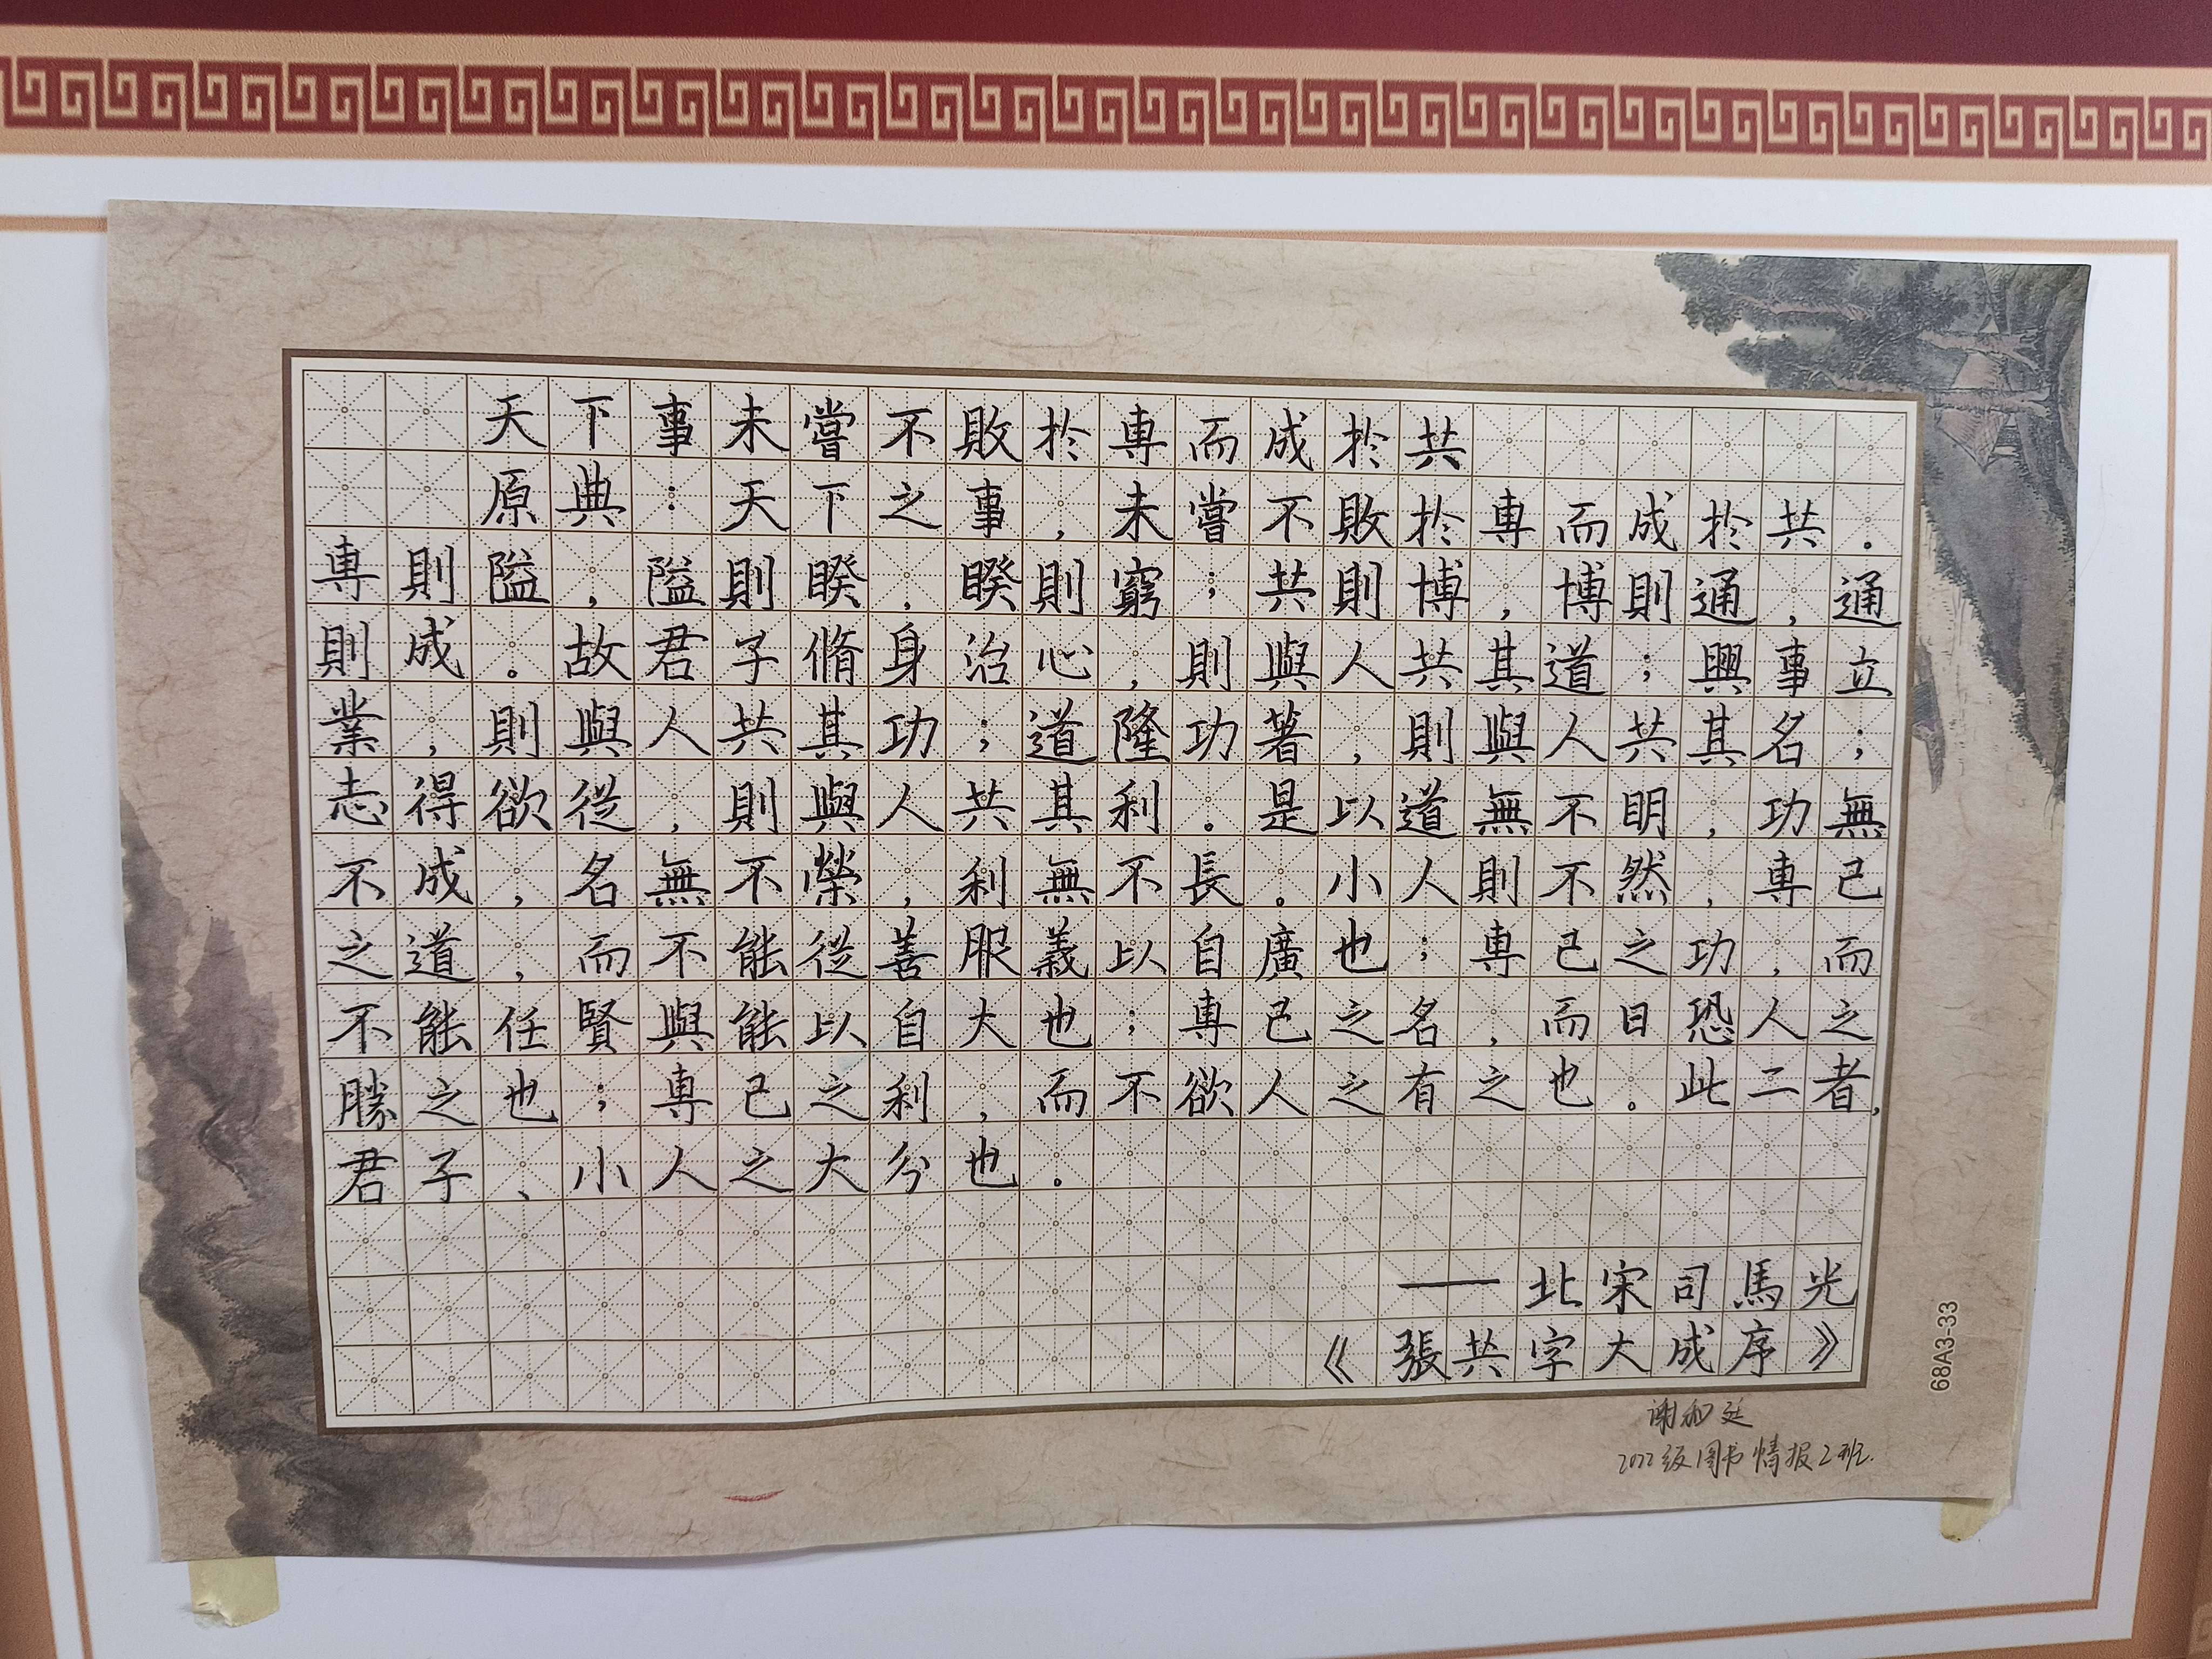 天下事未嘗不敗於專而成於共
原典：天下之事，未嘗不敗於專而成於共。
專則隘，隘則睽，睽則窮；共則博，博則通，通
則成。故君子脩身治心，則與人共其道；興事立
業，則與人共其功；道隆功著，則與人共其名；
志得欲從，則與人共其利。是以道無不明，功無
不成，名無不榮，利無不長。小人則不然，專己
之道，而不能從善服義以自廣也；專己之功，而
不能任賢與能以自大也；專己之名，而日恐人之
勝之也；專己之利，而不欲人之有之也。此二者，
君子、小人之大分也。
——北宋司馬光
《張共字大成序》
68A3-33
谢
2022级图书情报2班.